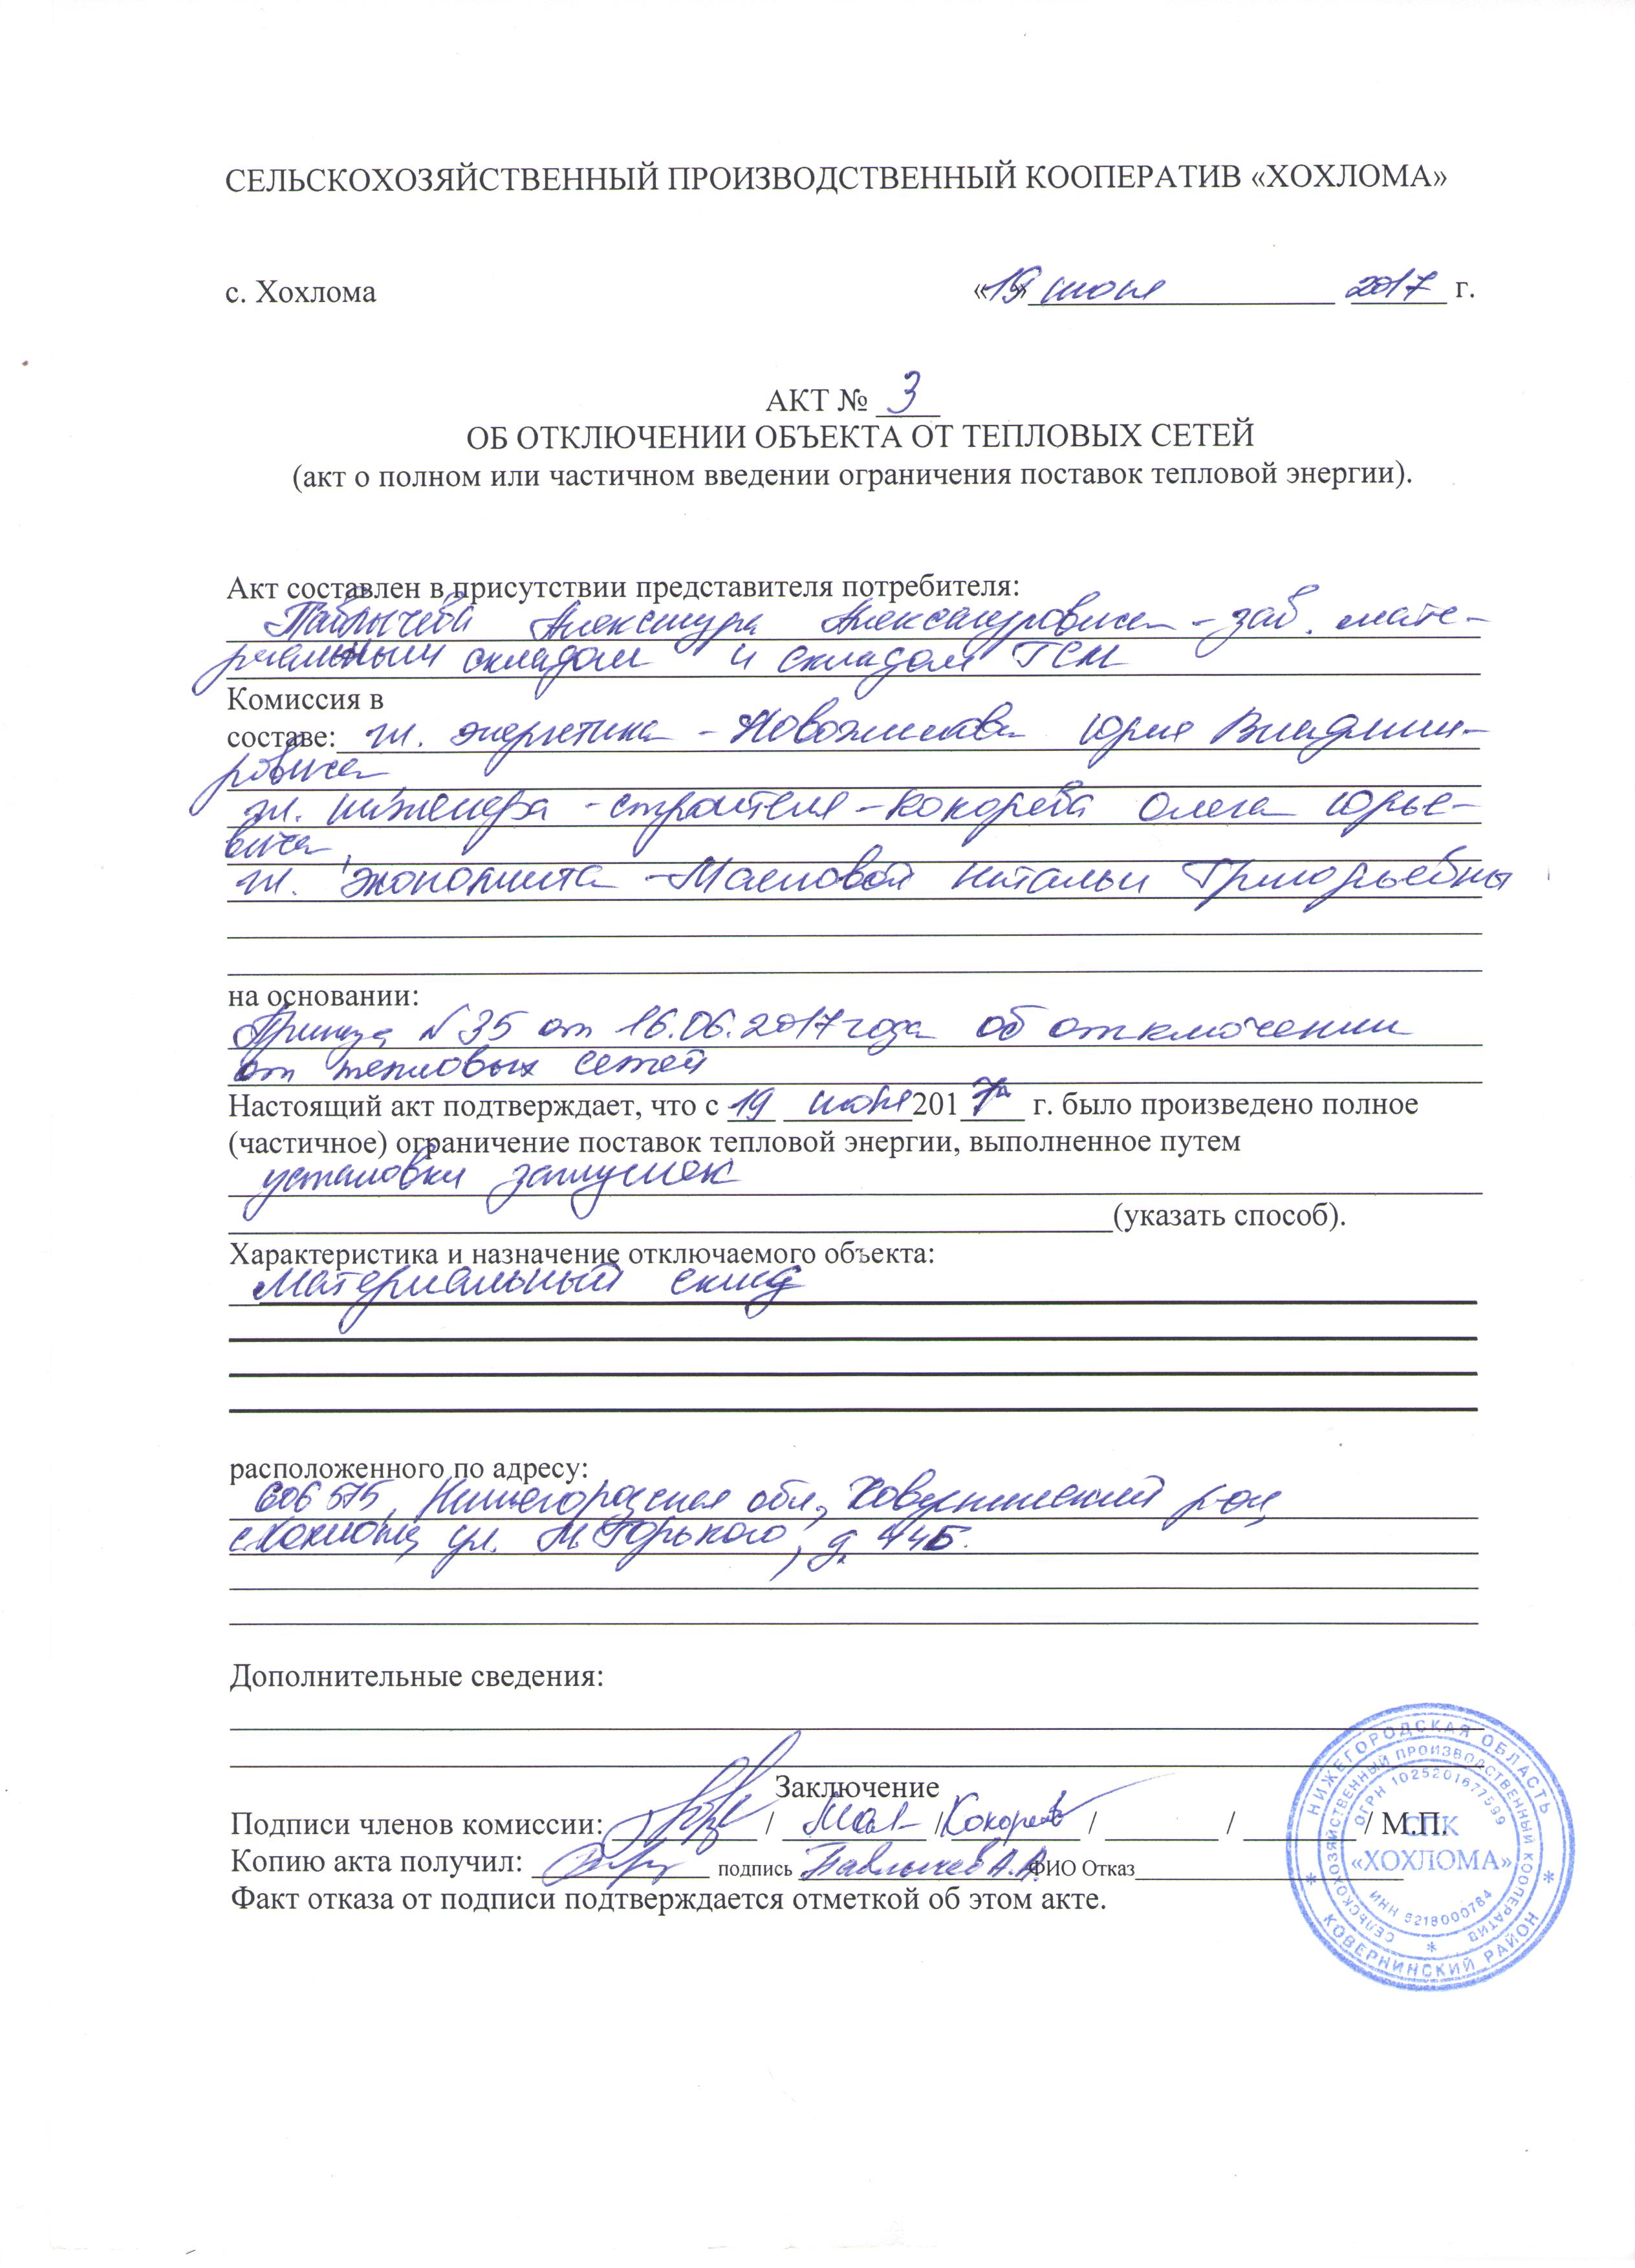 СЕЛЬСКОХОЗЯЙСТВЕННЫЙ ПРОИЗВОДСТВЕННЫЙ КООПЕРАТИВ «ХОХЛОМА»
с. Хохлома «19» июня 2017 г.
АКТ № 3
ОБ ОТКЛЮЧЕНИИ ОБЪЕКТА ОТ ТЕПЛОВЫХ СЕТЕЙ
(акт о полном или частичном введении ограничения поставок тепловой энергии).
Акт составлен в присутствии представителя потребителя:
Павлычева Александра Александровича - зав. мате-
риальным складом и складом ГСМ
Комиссия в
составе: гл. энергетика - Новожилова Юрия Владими-
ровича
гл. инженера - строителя - Кокорева Олега Юрье-
вича,
гл. экономиста - Масловой Натальи Григорьевны
на основании:
Приказа № 35 от 16.06.2017 года об отключении
от тепловых сетей
Настоящий акт подтверждает, что с 19 июня 2017 г. было произведено полное
(частичное) ограничение поставок тепловой энергии, выполненное путем
установки заглушек
(указать способ).
Характеристика и назначение отключаемого объекта:
Материальный склад
расположенного по адресу:
606575, Нижегородская обл., Ковернинский р-он,
с. Хохлома, ул. М. Горького, д. 44Б.
Дополнительные сведения:
Заключение
Подписи членов комиссии: / / Кокорев / / / М.П.
Копию акта получил: подпись Павлычев А.А. ФИО Отказ
Факт отказа от подписи подтверждается отметкой об этом акте.
НИЖЕГОРОДСКАЯ ОБЛАСТЬ
КОВЕРНИНСКИЙ РАЙОН
СЕЛЬСКОХОЗЯЙСТВЕННЫЙ ПРОИЗВОДСТВЕННЫЙ КООПЕРАТИВ
ОГРН 1025201677599
СПК
«ХОХЛОМА»
ИНН 5218000784